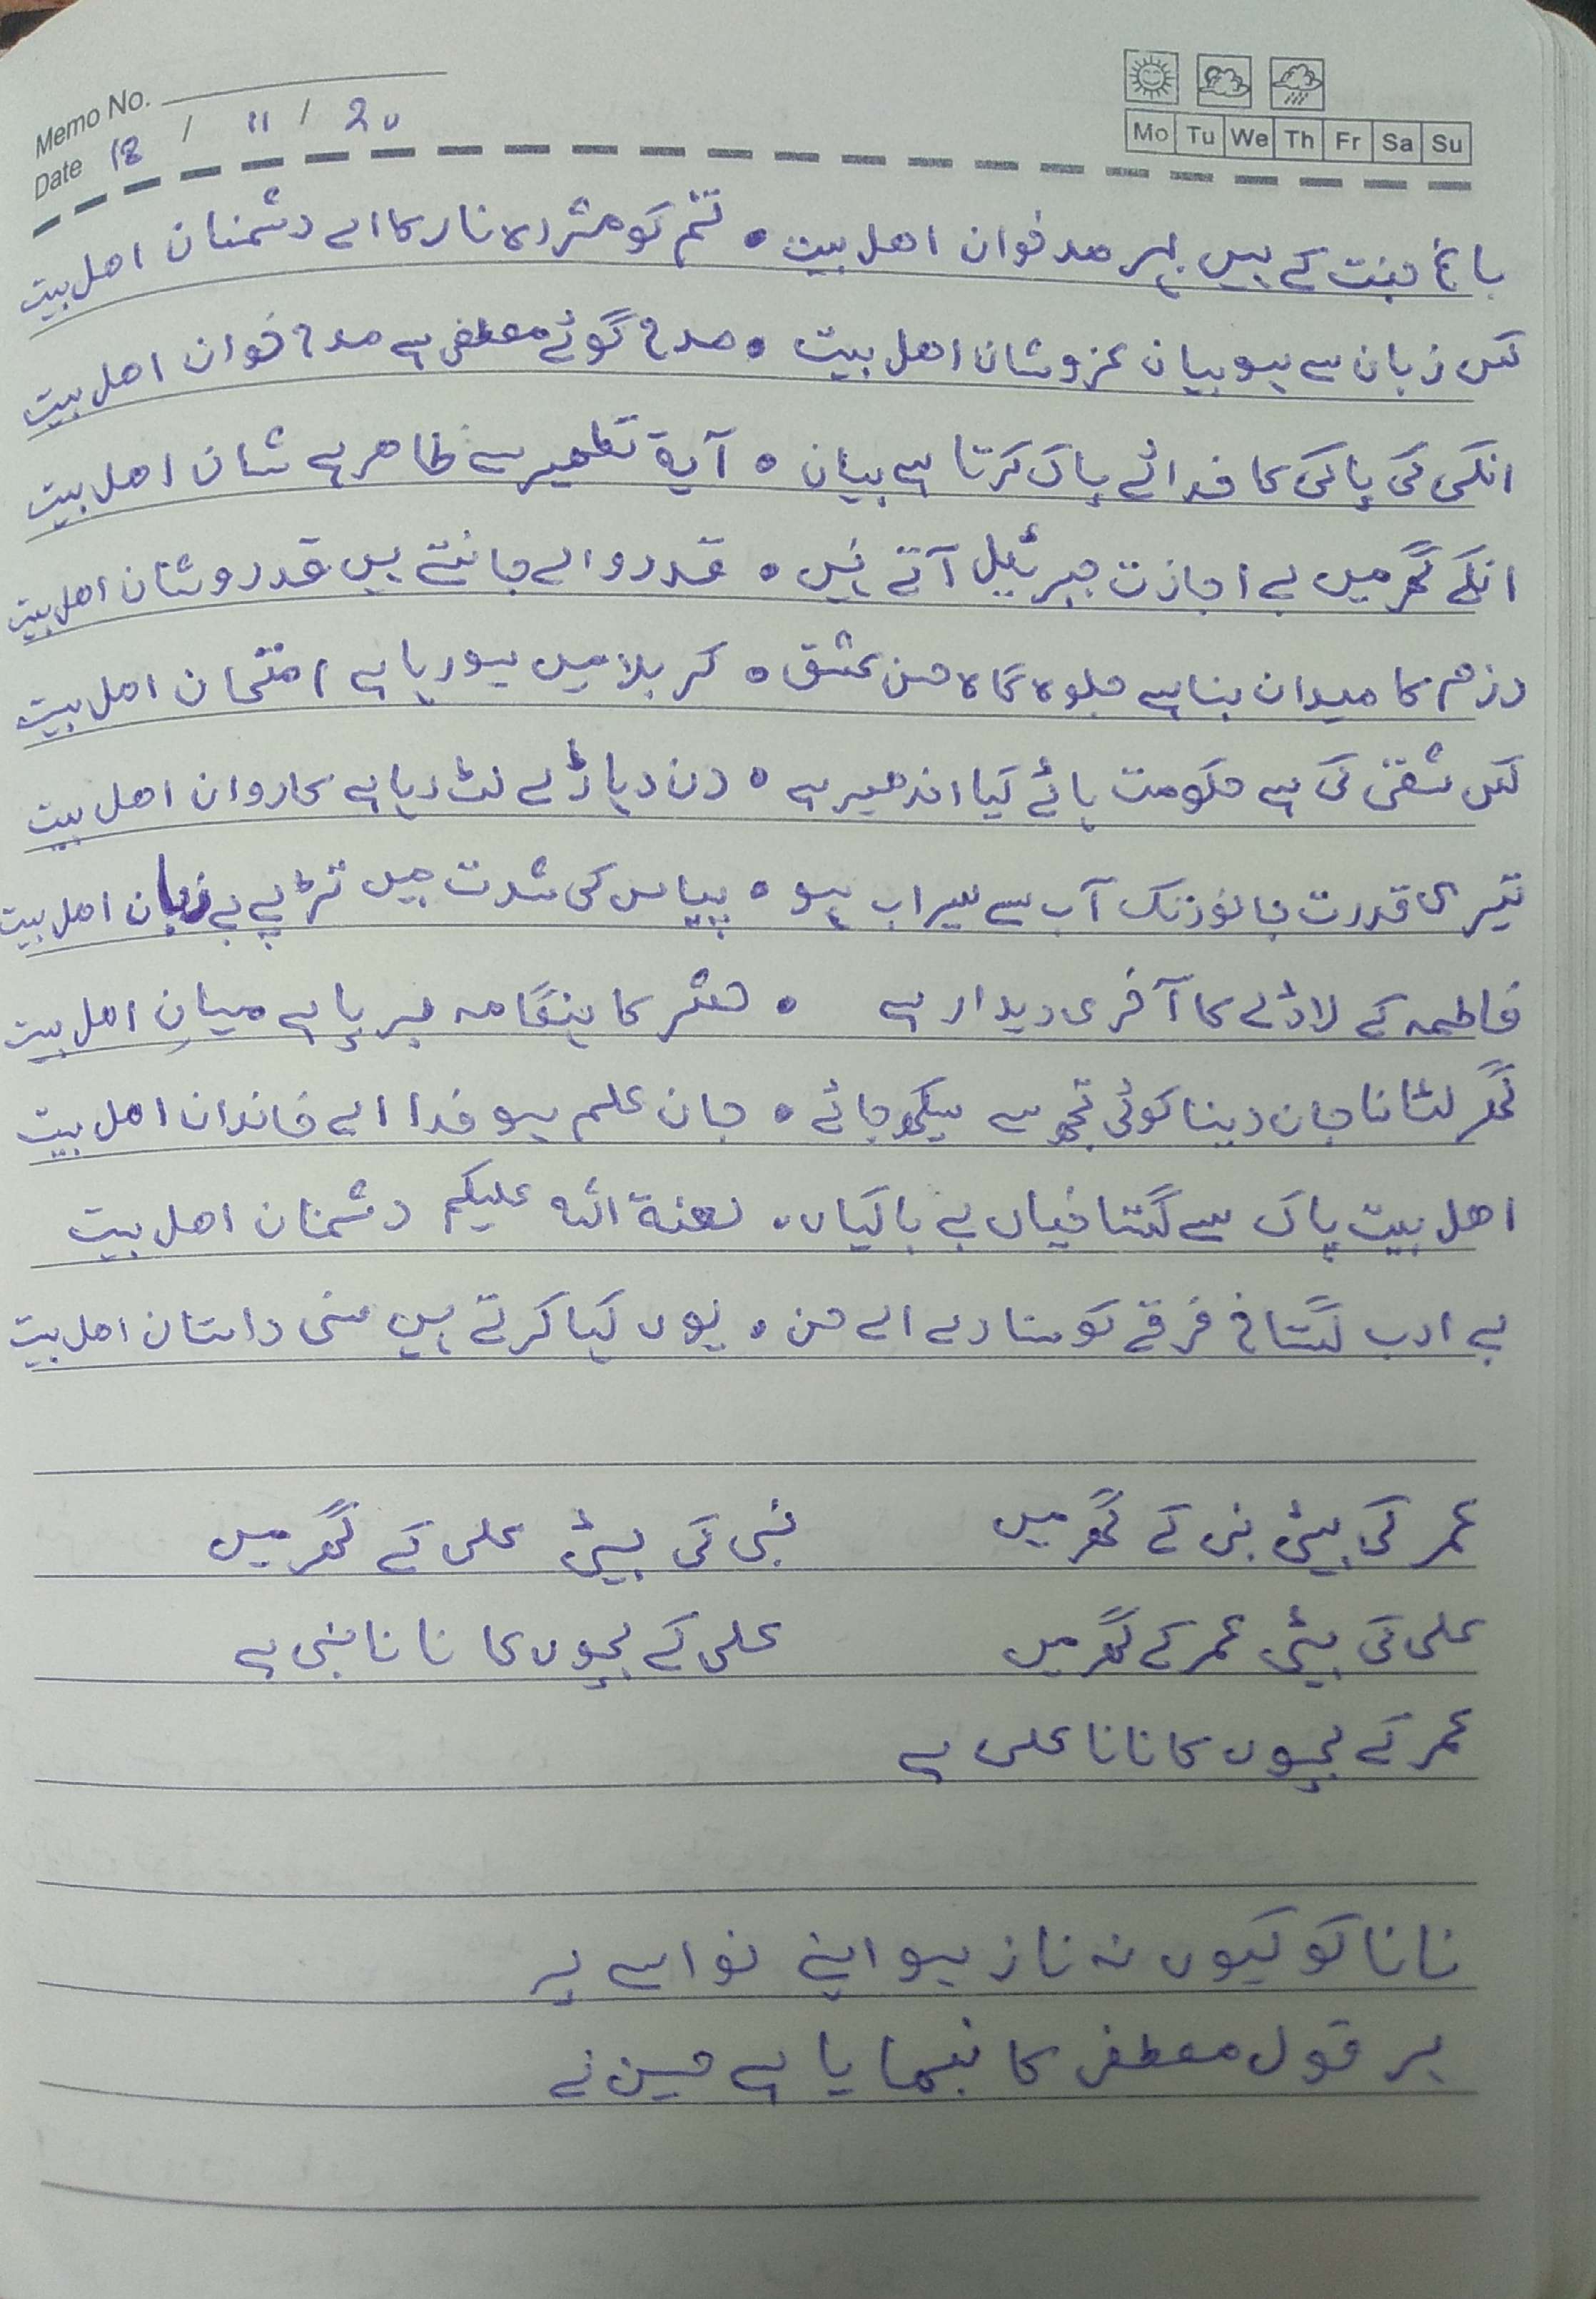 Memo No.
Date 18 / 11 / 20
Mo Tu We Th Fr Sa Su
باغ جنت کے ہیں بہر مدخوان اھل بیت • تم کو مژدہ نار کا اے دشمنان اھل بیت
کس زبان سے ہو بیان عز و شان اھل بیت • مدح گوئے مصطفی ہے مدح خوان اھل بیت
انکی کی پاکی کا خدائے پاک کرتا ہے بیان • آیۃ تطھیر سے ظاھر ہے شان اھل بیت
انکے گھر میں بے اجازت جبرئیل آتے نہیں • قدر والے جانتے ہیں قدر و شان اھل بیت
رزم کا میدان بنا ہے جلوہ گاہ حسن عشق • کربلا میں ہو رہا ہے امتحان اھل بیت
کس شقی کی ہے حکومت ہائے کیا اندھیر ہے • دن دہاڑے لٹ رہا ہے کاروان اھل بیت
تیری قدرت جانور تک آب سے سیراب ہو • پیاس کی شدت میں تڑپے بے زبان اھل بیت
فاطمہ کے لاڈلے کا آخری دیدار ہے • حشر کا ہنگامہ برپا ہے میانِ اھل بیت
گھر لٹانا جان دینا کوئی تجھ سے سیکھ جائے • جان علم ہو فدا اے خاندان اھل بیت
اھل بیت پاک سے گستاخیاں بے باکیاں • لعنۃ اللہ علیکم دشمنان اھل بیت
بے ادب گستاخ فرقے کو سنا دے اے حسن • یوں کہا کرتے ہیں سنی داستان اھل بیت
عمر کی بیٹی نبی کے گھر میں نبی کی بیٹی علی کے گھر میں
علی کی بیٹی عمر کے گھر میں علی کے بچوں کا نانا نبی ہے
عمر کے بچوں کا نانا علی ہے
نانا کو کیوں نہ ناز ہو اپنے نواسے پر
ہر قول مصطفی کا نبھایا ہے حسین نے